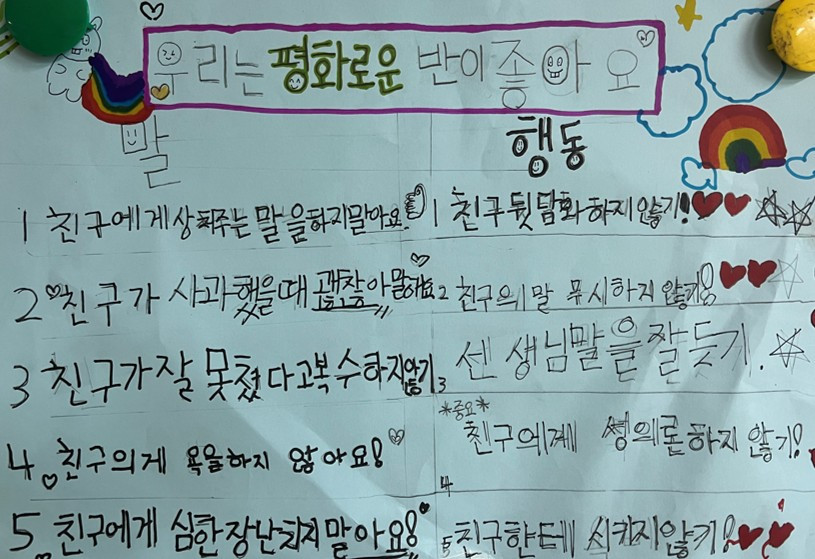 우리는 평화로운 반이 좋아요
말
1 친구에게 상처주는 말을하지말아요.
2 친구가 사과했을때 괜찮아말해요
3 친구가잘 못쳤다고복수하지않기
4 친구의게 욕을하지 않아요!
5 친구에게 심한장난치지말아요!
행동
1 친구뒷담화하지않기!
2 친구의말 무시하지 않기!
3 센생님말을잘듣기.
*중요*
4 친구에게 하지 않기!
5 친구한테 시키지않기!